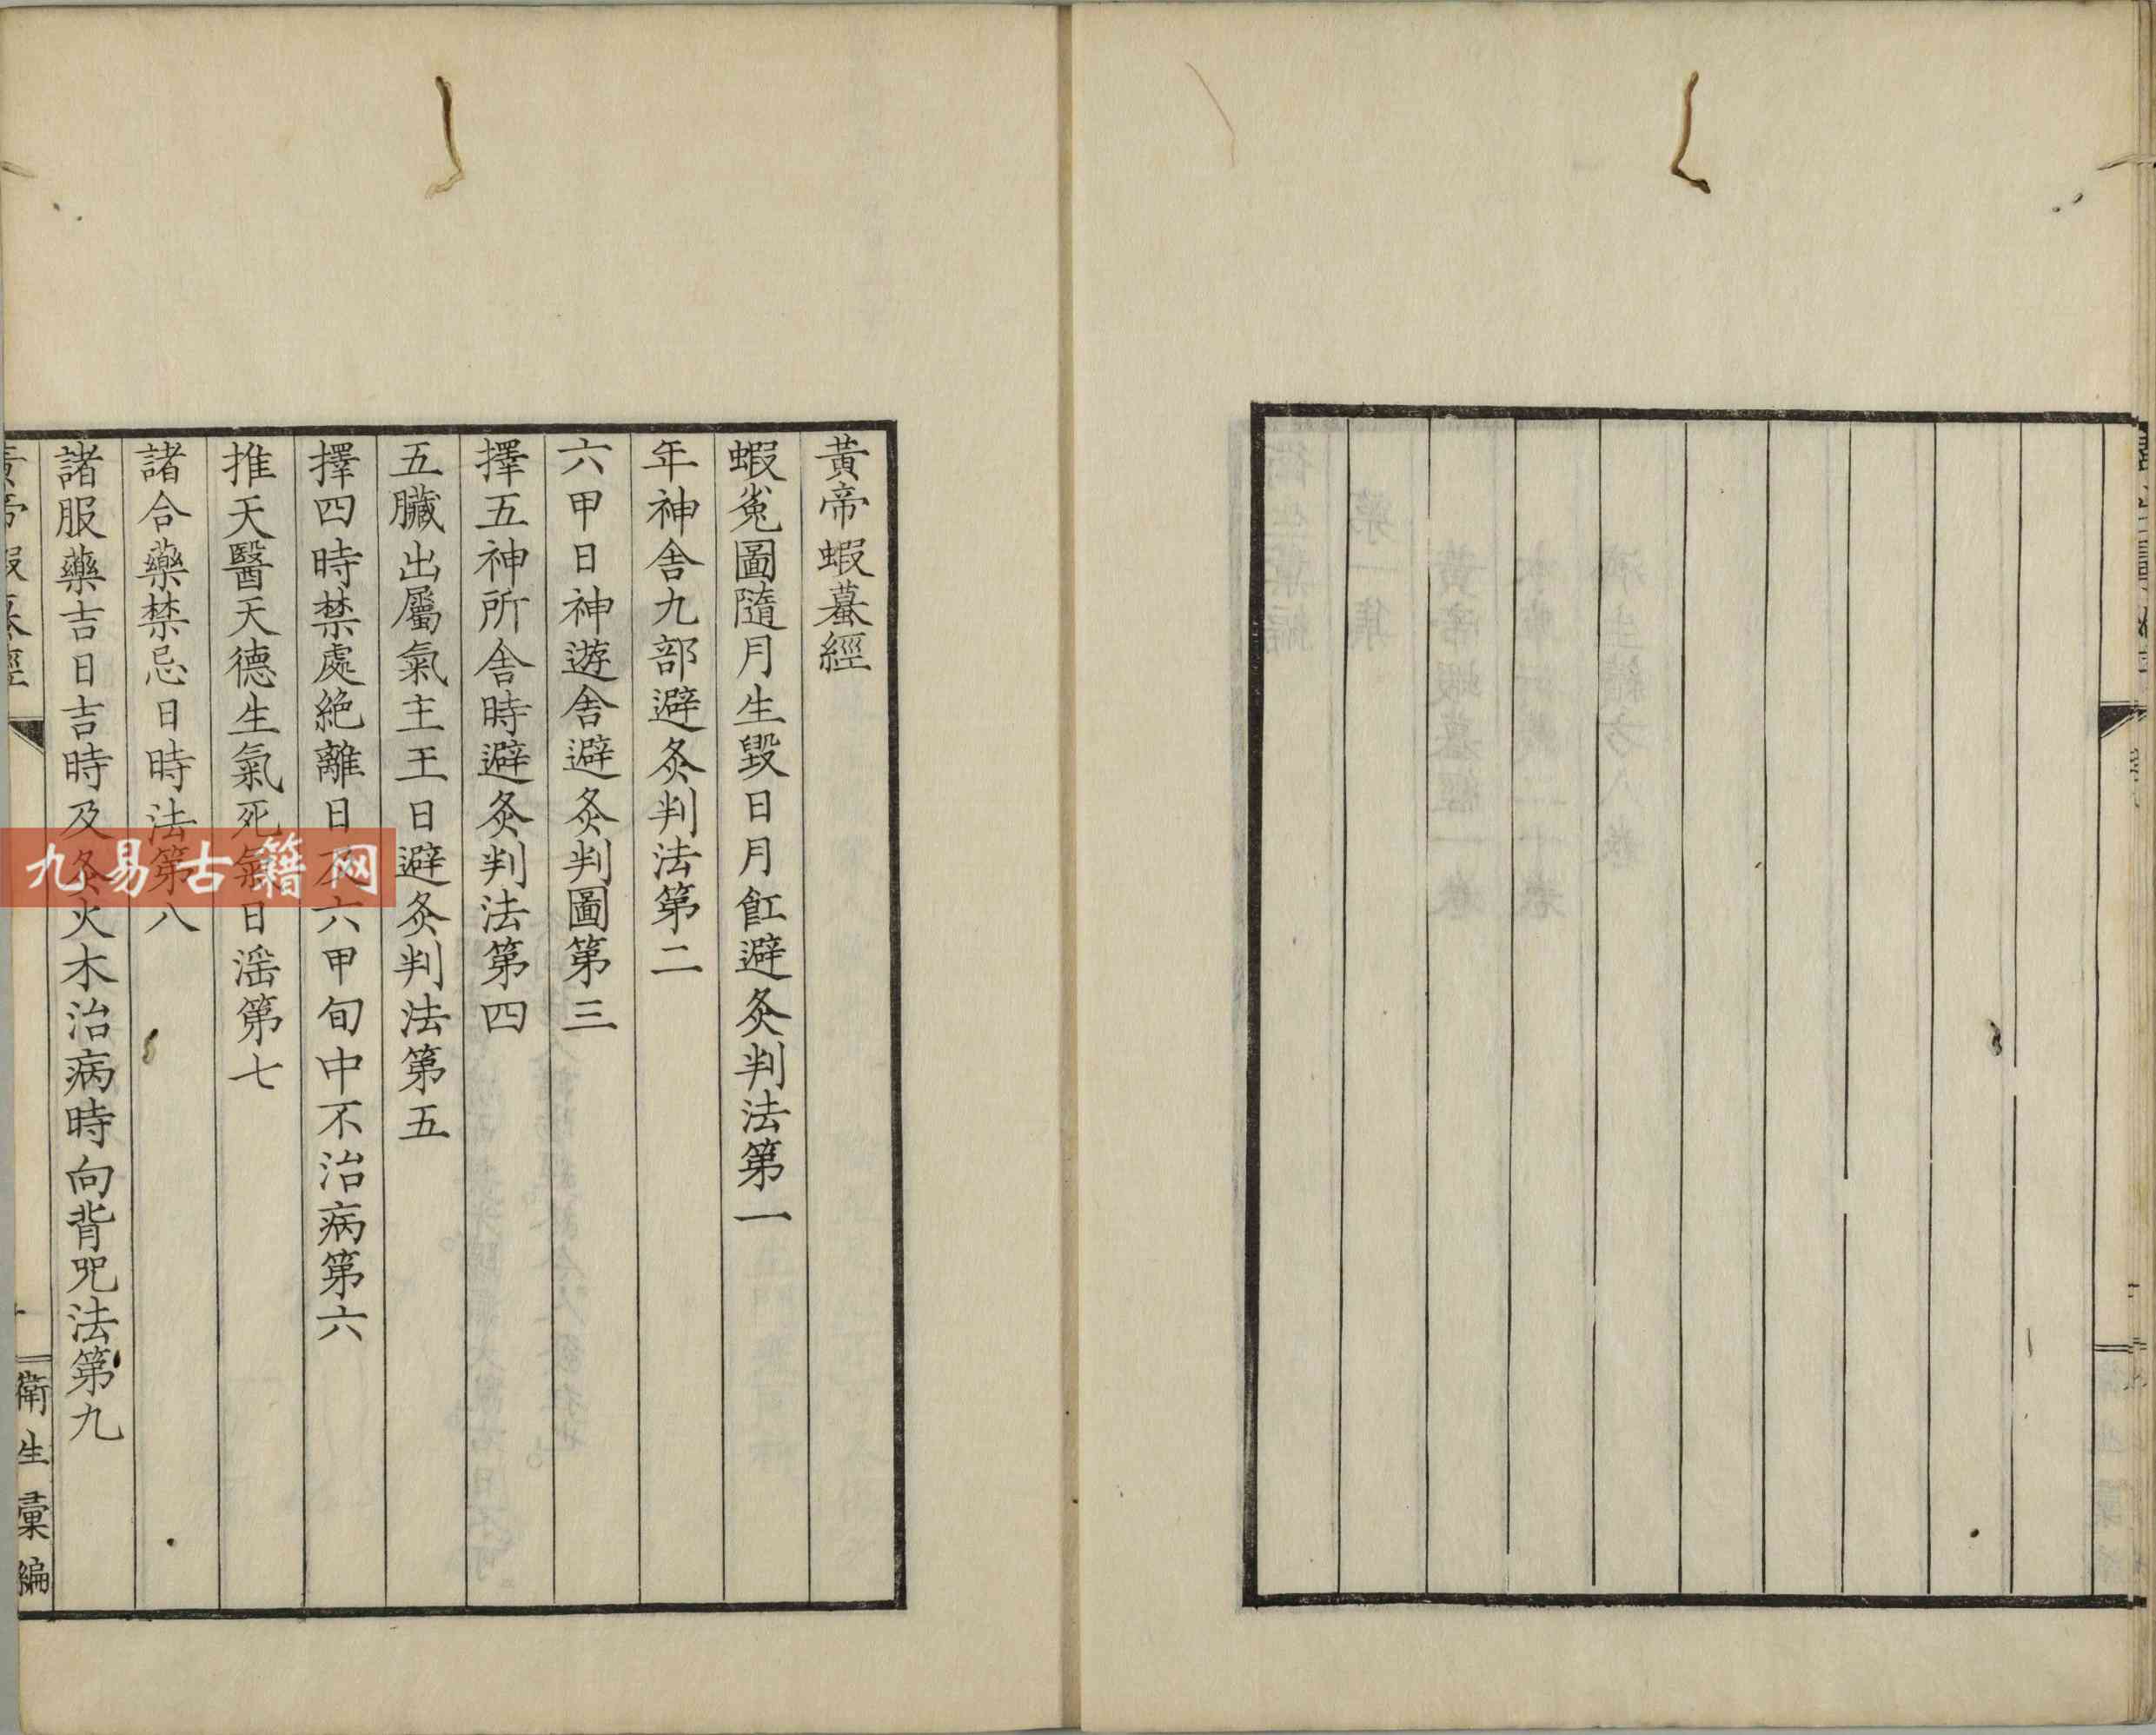 黃帝蝦蟇經
蝦兔圖隨月生毀日月飠工避灸判法第一
年神舍九部避灸判法第二
六甲日神遊舍避灸判圖第三
擇五神所舍時避灸判法第四
五臟出屬氣主王日避灸判法第五
擇四時禁處絕離日及六甲旬中不治病第六
推天醫天德生氣死氣日淫第七
諸合藥禁忌日時法第八
諸服藥吉日吉時及灸火木治病時向背咒法第九
衛生彙編
九易古籍网